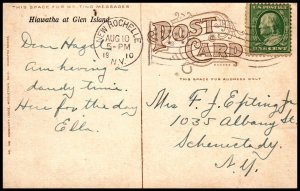 THIS SPACE FOR WRITING MESSAGES
Hiawatha at Glen Island.
Dear Hazel
Am having a
dandy time.
Here for the day
Ella.
NEW ROCHELLE
AUG 10
5-PM
19 10
N.Y.
POST
CARD
THIS SPACE FOR ADDRESS ONLY
Mrs. F. J. Epting Jr
1035 Albany St
Schenectady
N.Y.